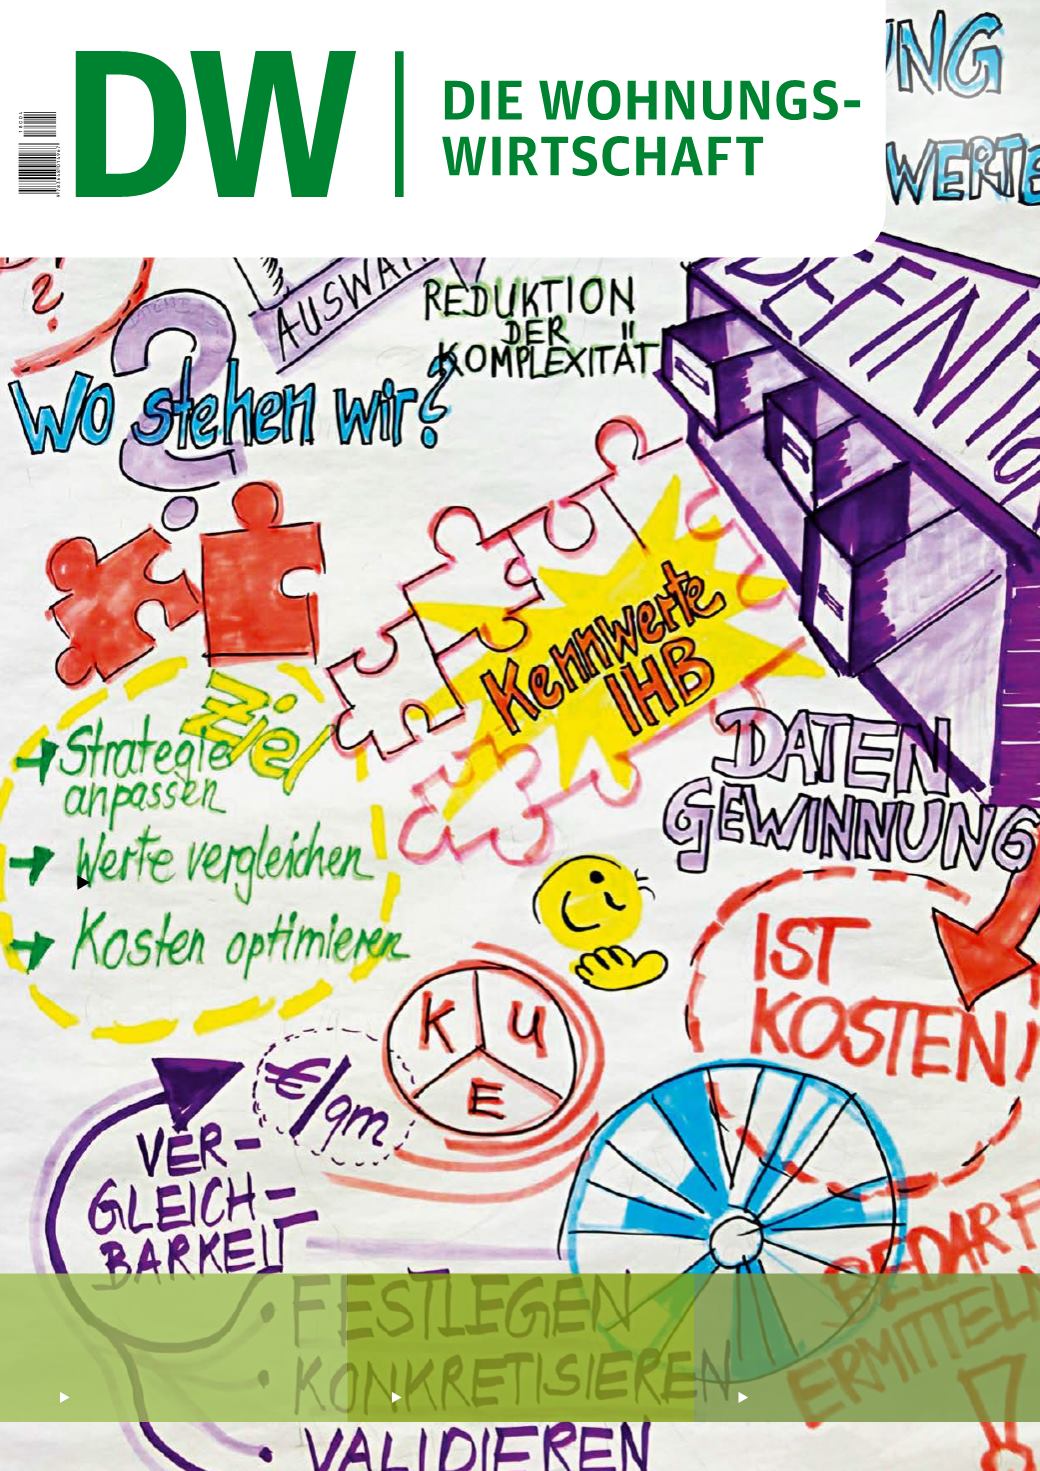 DW
DIE WOHNUNGS-
WIRTSCHAFT
AUSWA
REDUKTION
DER
KOMPLEXITÄT
DEFINITIO
?
Wo stehen wir?
Kennwerte
IHB
Ziel
→ Strategie
anpassen
→ Werte vergleichen
→ Kosten optimieren
DATEN
GEWINNUNG
IST
KOSTEN
K U
E
€/qm
VER-
GLEICH-
BARKEIT
BEDARF
ERMITTELN
!
• FESTLEGEN
• KONKRETISIEREN
• VALIDIEREN